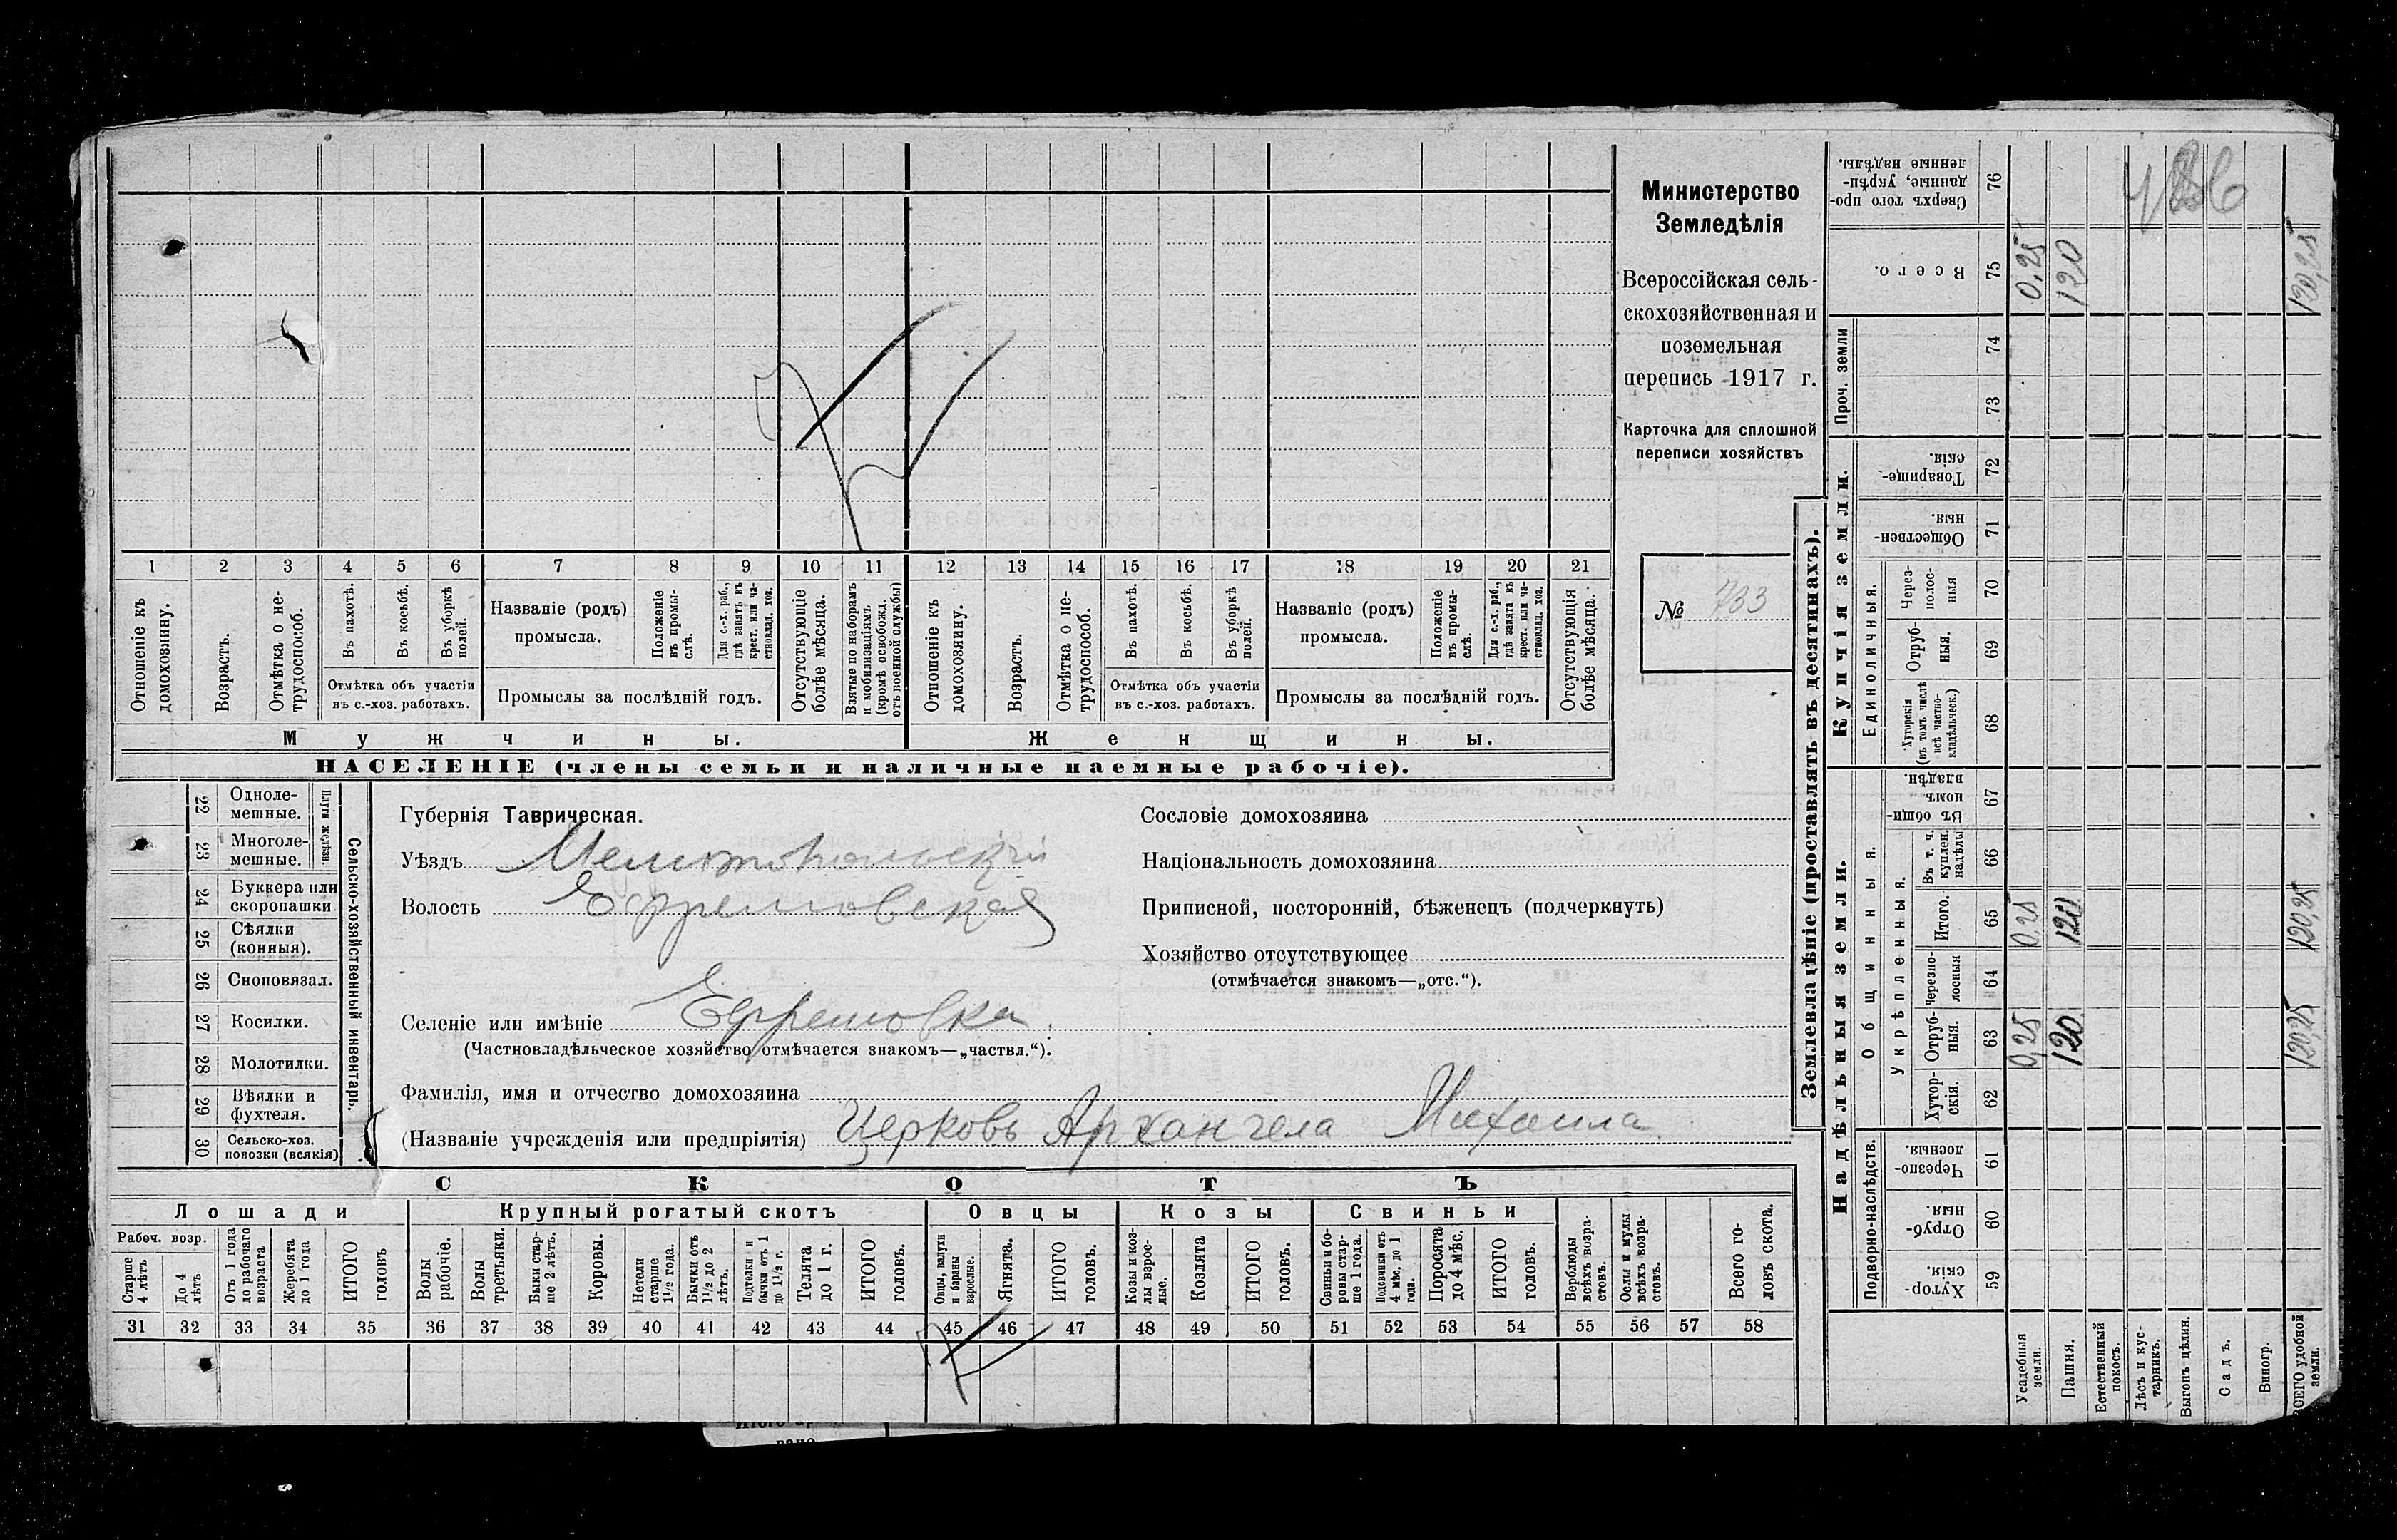 1 2 3 4 5 6 7 8 9 10 11 12 13 14 15 16 17 18 19 20 21
Отношеніе къ домохозяину.
Возрастъ.
Отмѣтка о не-
трудоспособ.
Въ пахотѣ.
Въ косьбѣ.
Въ уборкѣ
полей.
Отмѣтка объ участіи
въ с.-хоз. работахъ.
Названіе (родъ)
промысла.
Положеніе
въ промы-
слѣ.
Для с.-х. раб.,
гдѣ занятъ въ
крест. или ча-
стновлад. хоз.
Промыслы за послѣдній годъ.
Отсутствующіе
болѣе мѣсяца.
Взятые по наборамъ
и мобилизаціямъ
(кромѣ освобожд.
отъ военной службы)
Отношеніе къ
домохозяину.
Возрастъ.
Отмѣтка о не-
трудоспособ.
Въ пахотѣ.
Въ косьбѣ.
Въ уборкѣ
полей.
Отмѣтка объ участіи
въ с.-хоз. работахъ.
Названіе (родъ)
промысла.
Положеніе
въ промы-
слѣ.
Для с.-х. раб.,
гдѣ занята въ
крест. или ча-
стновлад. хоз.
Промыслы за послѣдній годъ.
Отсутствующія
болѣе мѣсяца.
Мужчины.
Женщины.
НАСЕЛЕНІЕ (члены семьи и наличные наемные рабочіе).
Министерство
Земледѣлія
Всероссійская сель-
скохозяйственная и
поземельная
перепись 1917 г.
Карточка для сплошной
переписи хозяйствъ
№ 733
22 Одноле-
мешные.
23 Многоле-
мешные.
Плуги желѣзн.
24 Буккера или
скоропашки
25 Сѣялки
(конныя).
26 Сноповязал.
27 Косилки.
28 Молотилки.
29 Вѣялки и
фухтеля.
30 Сельско-хоз.
повозки (всякія)
Сельско-хозяйственный инвентарь.
Губернія Таврическая.
Уѣздъ Мелитопольскій
Волость Ефремовская
Селеніе или имѣніе Ефремовка
(Частновладѣльческое хозяйство отмѣчается знакомъ—„частвл.“).
Сословіе домохозяина
Національность домохозяина
Приписной, посторонній, бѣженецъ (подчеркнуть)
Хозяйство отсутствующее
(отмѣчается знакомъ—„отс.“).
Фамилія, имя и отчество домохозяина
(Названіе учрежденія или предпріятія) Церковь Архангела Михаила
СКОТЪ
Лошади
Крупный рогатый скотъ
Овцы
Козы
Свиньи
Рабоч. возр.
Старше
4 лѣтъ
До 4
лѣтъ
Отъ 1 года
до рабочаго
возраста
Жеребята
до 1 года
ИТОГО
головъ
Волы
рабочіе.
Волы
третьяки.
Быки стар-
ше 2 лѣтъ.
Коровы.
Нетели
старше
1½ года.
Бычки отъ
1½ до 2
лѣтъ.
Подтелки и
бычки отъ 1
до 1½ г.
Телята
до 1 г.
ИТОГО
головъ.
Овцы, валухи
и бараны
взрослые.
Ягнята.
ИТОГО
головъ.
Козы и коз-
лы взрос-
лые.
Козлята
ИТОГО
головъ.
Свиньи и бо-
ровы стар-
ше 1 года.
Подсвинки отъ
4 мѣс. до 1
года.
Поросята
до 4 мѣс.
ИТОГО
головъ.
Верблюды
всѣхъ возра-
стовъ.
Ослы и мулы
всѣхъ возра-
стовъ.
Всего го-
ловъ скота.
31 32 33 34 35 36 37 38 39 40 41 42 43 44 45 46 47 48 49 50 51 52 53 54 55 56 57 58
Землевладѣніе (проставлять въ десятинахъ).
Купчія земли.
Надѣльныя земли.
Сверхъ того про-
данные, укрѣп-
ленные надѣлы.
76
Всего.
75 0,25 120 120,25
Проч. земли
74
73
Товарище-
скія.
72
Обществен-
ныя.
71
Единоличныя.
Через-
полос-
ныя
70
Отруб-
ныя.
69
Хуторскія
(въ томъ числѣ
всѣ частно-
владѣльческ.)
68
Общинныя.
Въ общин-
номъ
владѣн.
67
Укрѣпленныя.
Въ т. ч.
куплен.
надѣлы
66
Итого.
65 0,25 120 120,25
Черезпо-
лосныя
64
Отруб-
ныя.
63 0,25 120 120,25
Хутор-
скія.
62
Подворно-наслѣдств.
Черезпо-
лосныя.
61
Отруб-
ныя.
60
Хутор-
скія.
59
Усадебныя
земли.
Пашня.
Естественный
покосъ.
Лѣсъ и кус-
тарникъ.
Выгонъ цѣлин.
Садъ.
Виногр.
ВСЕГО удобной
земли.